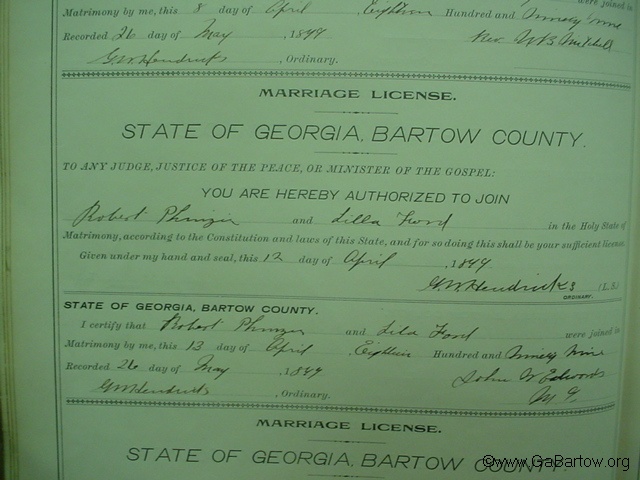 were joined in
Matrimony by me, this 8 day of April , Eighteen Hundred and Ninety nine
Recorded 26 day of May , 1899 Rev. W B Mitchell
G W Hendricks , Ordinary.
MARRIAGE LICENSE.
STATE OF GEORGIA, BARTOW COUNTY.
TO ANY JUDGE, JUSTICE OF THE PEACE, OR MINISTER OF THE GOSPEL:
YOU ARE HEREBY AUTHORIZED TO JOIN
Robert Phinizi and Lilla Ford in the Holy State of
Matrimony, according to the Constitution and laws of this State, and for so doing this shall be your sufficient license.
Given under my hand and seal, this 12 day of April , 1899
G. W. Hendricks (L.S.)
ORDINARY.
STATE OF GEORGIA, BARTOW COUNTY.
I certify that Robert and Lila Ford were joined in
Matrimony by me, this 13 day of April , Eighteen Hundred and Ninety Nine
Recorded 26 day of May , 1899 John W Edwards
G W Hendricks , Ordinary. M G.
MARRIAGE LICENSE.
STATE OF GEORGIA, BARTOW COUNTY.
©www.GaBartow.org